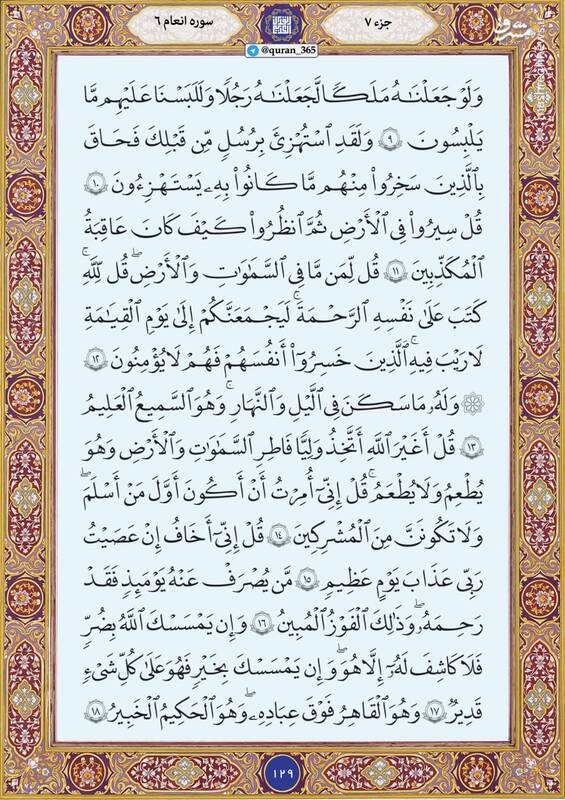 جزء ٧
سوره انعام ٦
@quran_365
وَلَوْ جَعَلْنَـٰهُ مَلَكًا لَّجَعَلْنَـٰهُ رَجُلًا وَلَلَبَسْنَا عَلَيْهِم مَّا
يَلْبِسُونَ ٩ وَلَقَدِ ٱسْتُهْزِئَ بِرُسُلٍ مِّن قَبْلِكَ فَحَاقَ
بِٱلَّذِينَ سَخِرُوا۟ مِنْهُم مَّا كَانُوا۟ بِهِۦ يَسْتَهْزِءُونَ ١٠
قُلْ سِيرُوا۟ فِى ٱلْأَرْضِ ثُمَّ ٱنظُرُوا۟ كَيْفَ كَانَ عَـٰقِبَةُ
ٱلْمُكَذِّبِينَ ١١ قُل لِّمَن مَّا فِى ٱلسَّمَـٰوَٰتِ وَٱلْأَرْضِ ۖ قُل لِّلَّهِ ۚ
كَتَبَ عَلَىٰ نَفْسِهِ ٱلرَّحْمَةَ ۚ لَيَجْمَعَنَّكُمْ إِلَىٰ يَوْمِ ٱلْقِيَـٰمَةِ
لَا رَيْبَ فِيهِ ۚ ٱلَّذِينَ خَسِرُوٓا۟ أَنفُسَهُمْ فَهُمْ لَا يُؤْمِنُونَ ١٢
۞ وَلَهُۥ مَا سَكَنَ فِى ٱلَّيْلِ وَٱلنَّهَارِ ۚ وَهُوَ ٱلسَّمِيعُ ٱلْعَلِيمُ
١٣ قُلْ أَغَيْرَ ٱللَّهِ أَتَّخِذُ وَلِيًّا فَاطِرِ ٱلسَّمَـٰوَٰتِ وَٱلْأَرْضِ وَهُوَ
يُطْعِمُ وَلَا يُطْعَمُ ۗ قُلْ إِنِّىٓ أُمِرْتُ أَنْ أَكُونَ أَوَّلَ مَنْ أَسْلَمَ ۖ
وَلَا تَكُونَنَّ مِنَ ٱلْمُشْرِكِينَ ١٤ قُلْ إِنِّىٓ أَخَافُ إِنْ عَصَيْتُ
رَبِّى عَذَابَ يَوْمٍ عَظِيمٍ ١٥ مَّن يُصْرَفْ عَنْهُ يَوْمَئِذٍ فَقَدْ
رَحِمَهُۥ ۚ وَذَٰلِكَ ٱلْفَوْزُ ٱلْمُبِينُ ١٦ وَإِن يَمْسَسْكَ ٱللَّهُ بِضُرٍّ
فَلَا كَاشِفَ لَهُۥٓ إِلَّا هُوَ ۖ وَإِن يَمْسَسْكَ بِخَيْرٍ فَهُوَ عَلَىٰ كُلِّ شَىْءٍ
قَدِيرٌ ١٧ وَهُوَ ٱلْقَاهِرُ فَوْقَ عِبَادِهِۦ ۚ وَهُوَ ٱلْحَكِيمُ ٱلْخَبِيرُ ١٨
١٢٩